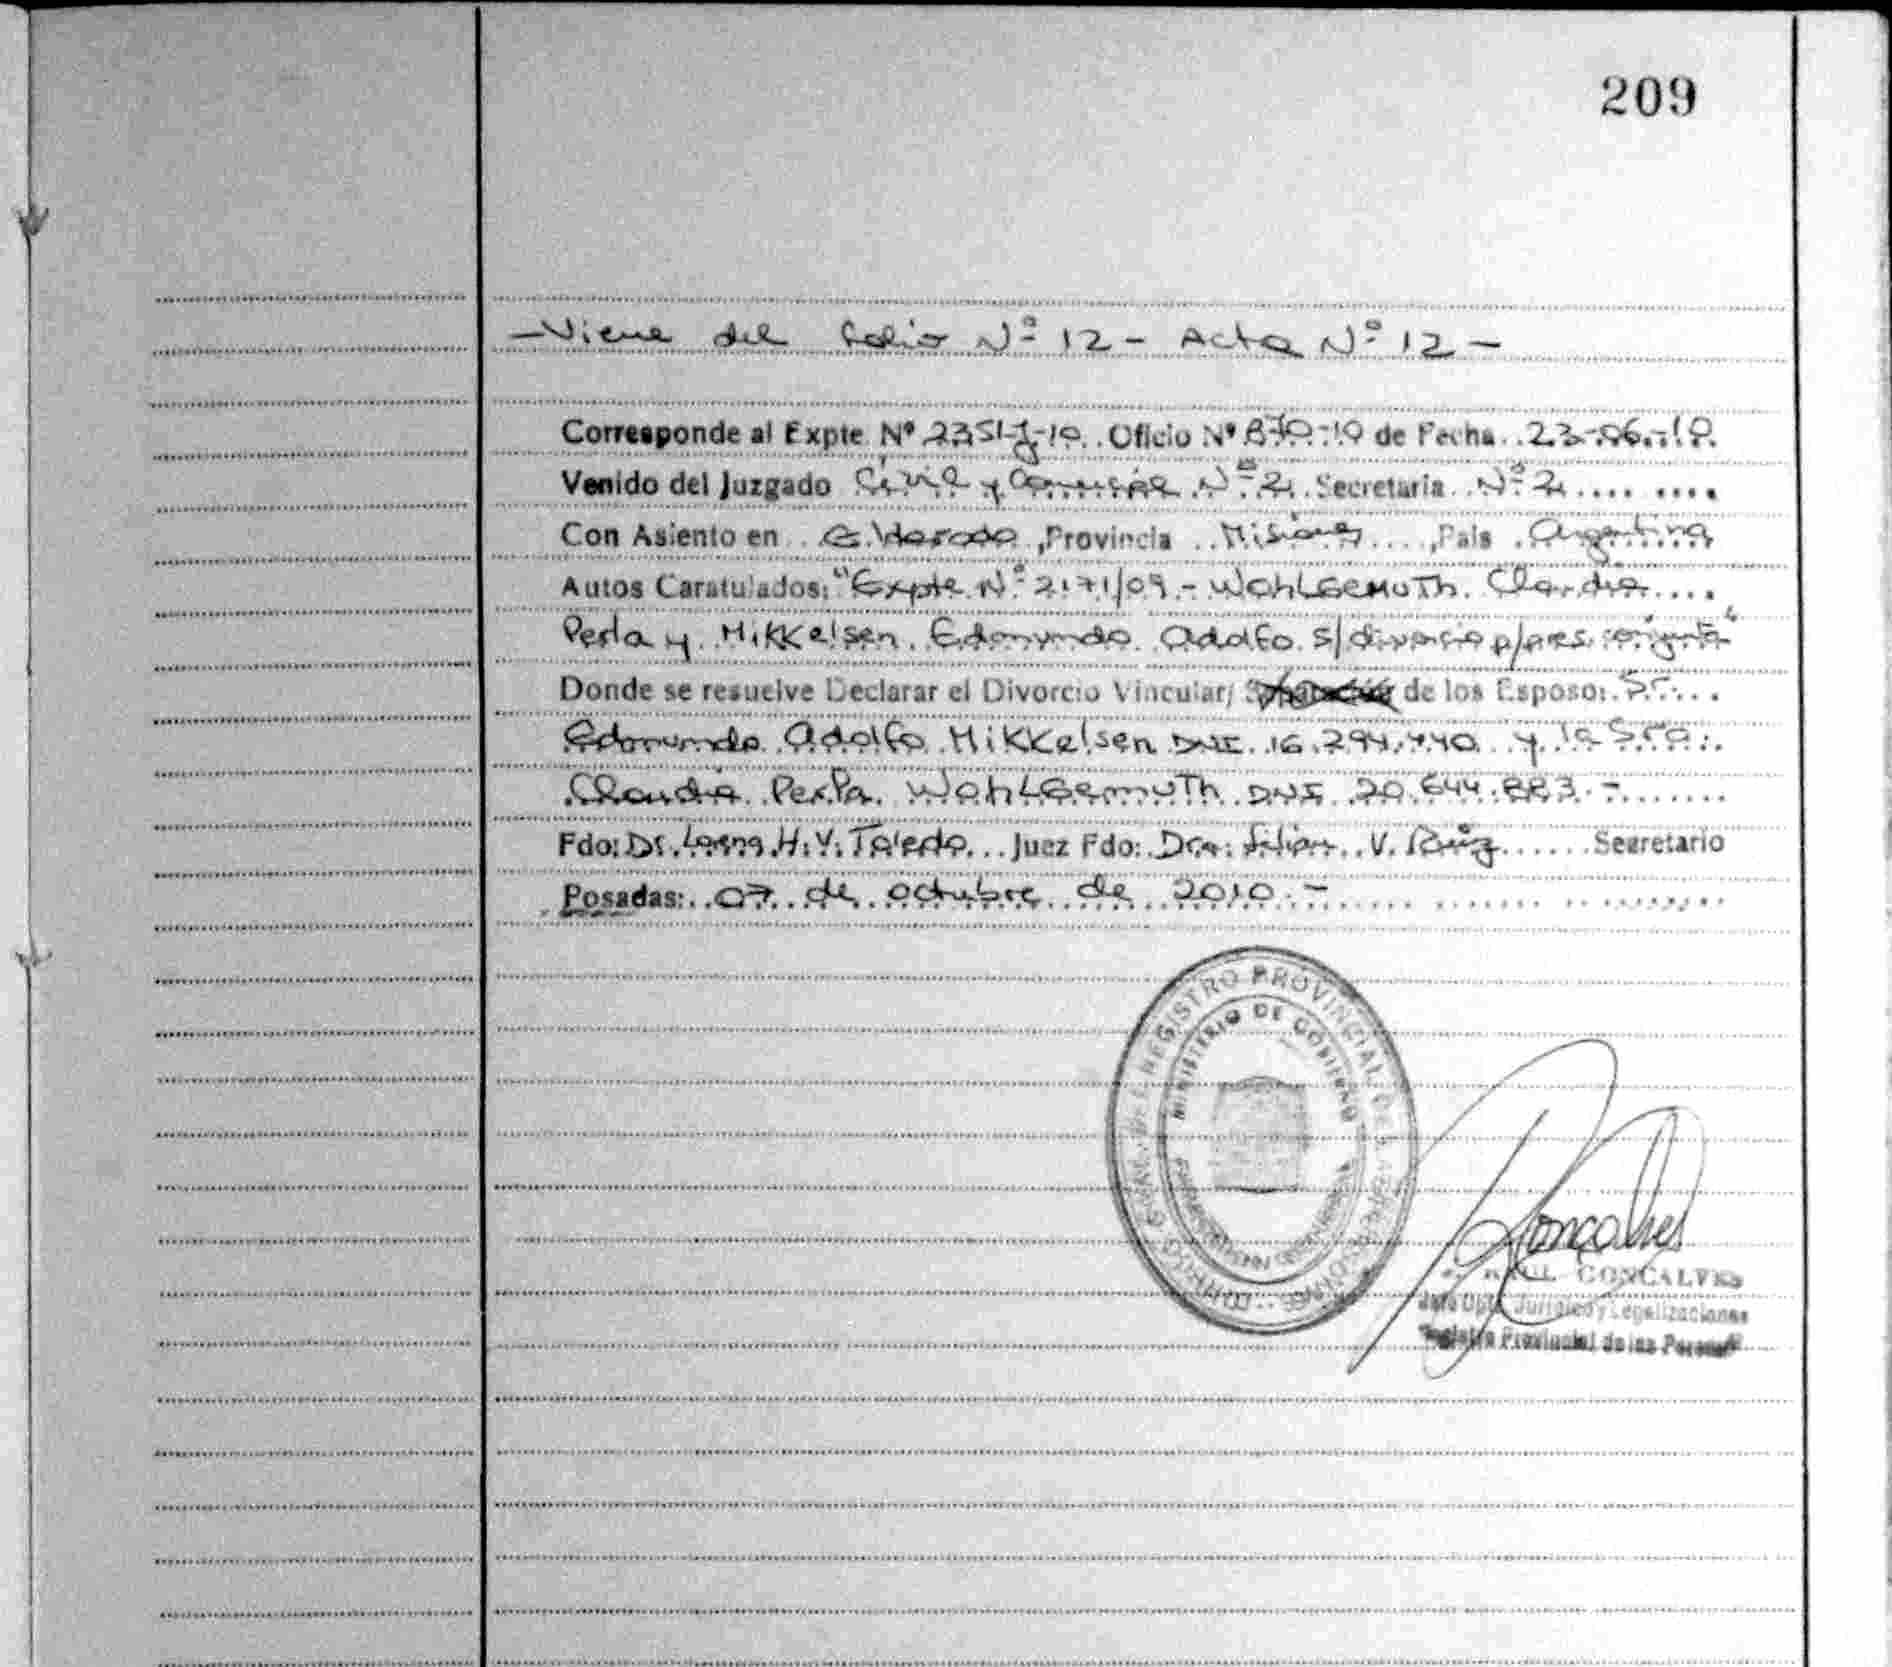 209
-Viene del folio Nº 12 - Acta Nº 12 -
Corresponde al Expte Nº 2351-J-10 Oficio Nº 870-10 de Fecha 23-06-10
Venido del Juzgado Civil y Comercial Nº 2 Secretaria Nº 2
Con Asiento en Eldorado, Provincia Misiones, Pais Argentina
Autos Caratulados: "Expte Nº 2171/09 - Wohlgemuth Claudia
Perla y Mikkelsen Edmundo Adolfo s/divorcio p/pres. conjunta"
Donde se resuelve Declarar el Divorcio Vincular/ de los Esposo: Sr.
Edmundo Adolfo Mikkelsen DNI 16.294.440 y la Sra.
Claudia Perla Wohlgemuth DNI 20.644.883.-
Fdo: Dr. Lorena H.V. Toledo Juez Fdo: Dra. Lilian V. Ruiz Secretario
Posadas: 07 de octubre de 2010.-
REGISTRO PROVINCIAL DE LAS PERSONAS
MINISTERIO DE GOBIERNO
RAUL GONCALVES
Jefe Dpto. Juridico y Legalizaciones
Registro Provincial de las Personas